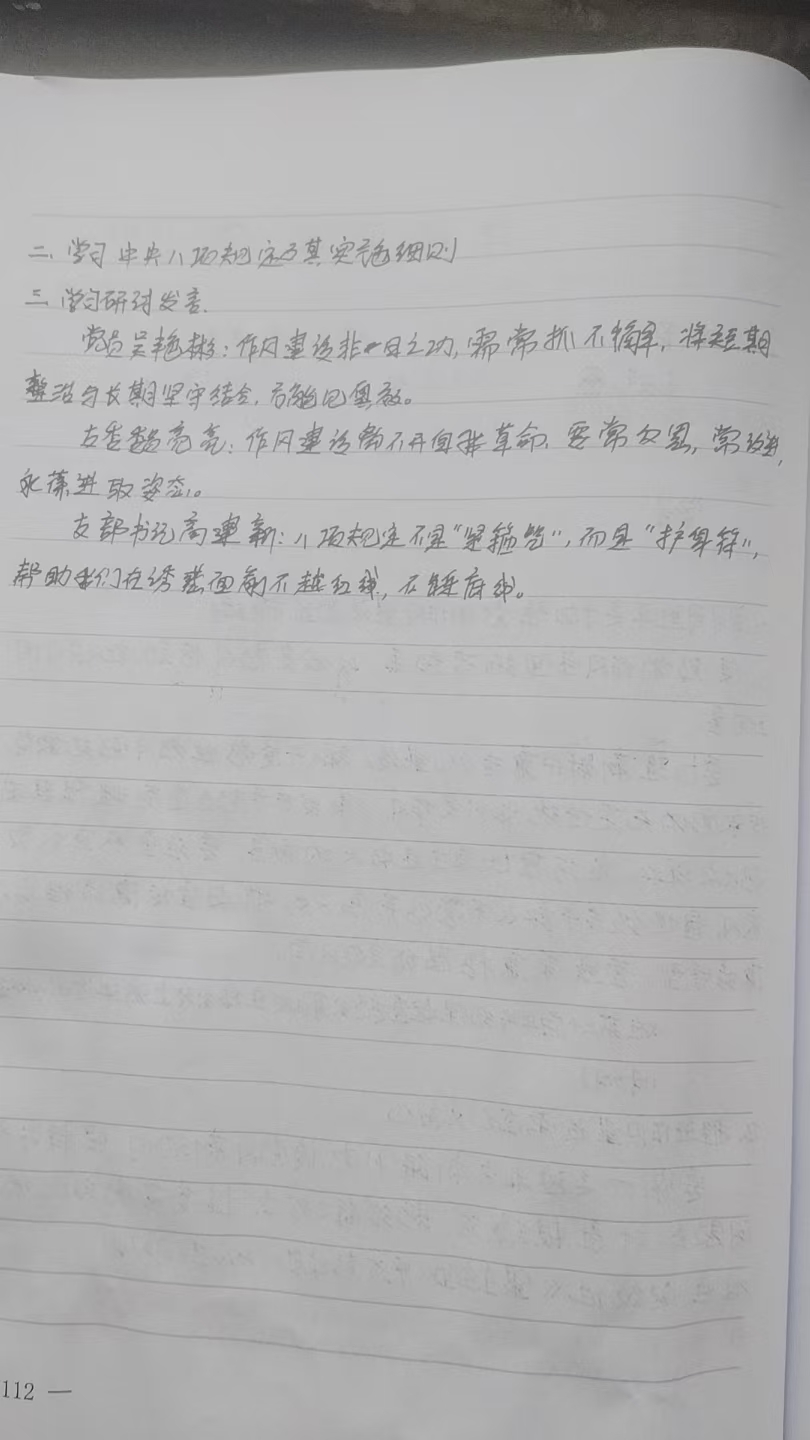 二、学习中央八项规定及其实施细则
三、学习研讨发言.
党员吴艳彬：作风建设非一日之功，需常抓不懈，将短期
整治与长期坚守结合，方能见实效。
亮亮：作风建设离不开自我革命，要常反思，常改进，
永葆进取姿态。
支部书记高建新：八项规定不是“紧箍咒”，而是“护身符”，
帮助我们在诱惑面前不越红线，不踩底线。
112 —